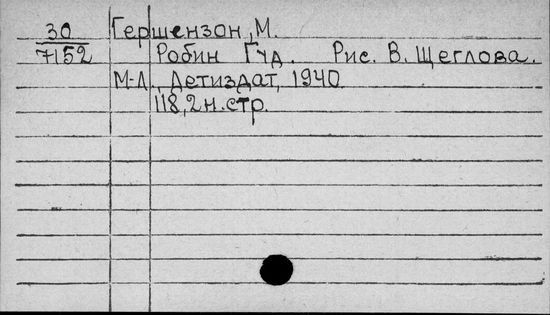 30 Гершензон, М.
7152 Робин Гуд. Рис. В. Щеглова.
М-Л., Детиздат, 1940.
118,2н.стр.